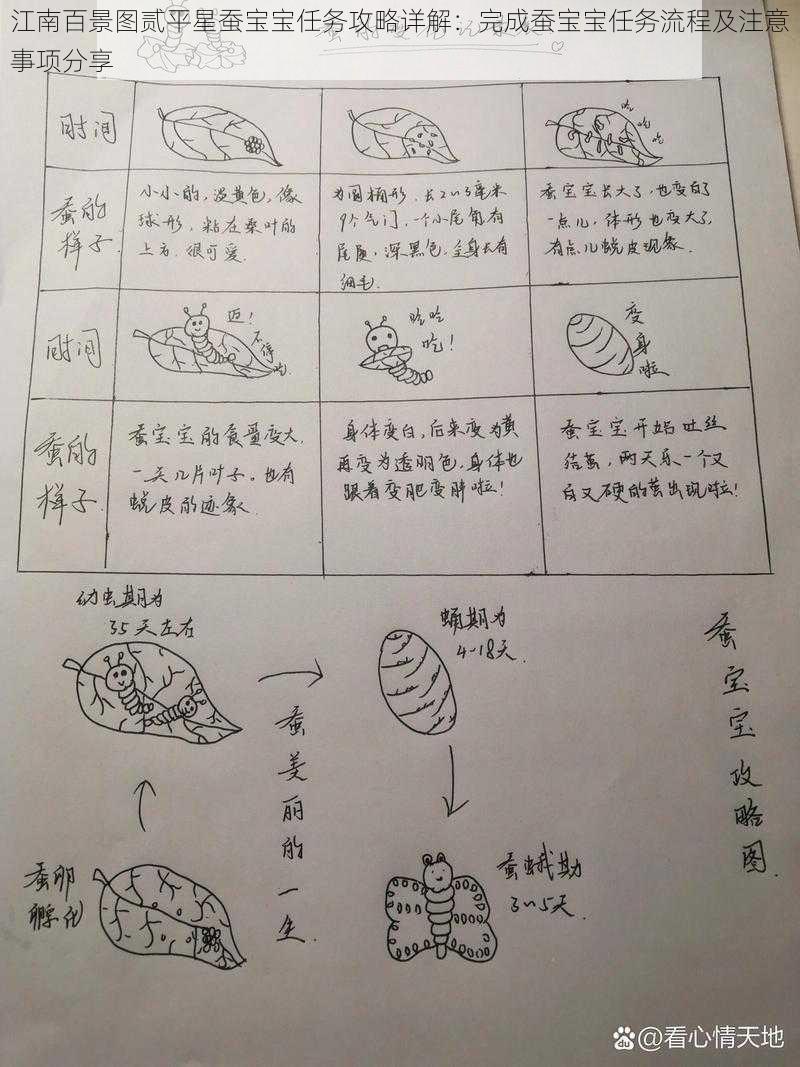 江南百景图贰平星蚕宝宝任务攻略详解：完成蚕宝宝任务流程及注意
事项分享
时间
吃
吃
吃
蚕的
样子
小小的，淡黄色，像
球形，粘在桑叶的
上方，很可爱.
为圆桶形，长2~3毫米
9个气门，一个小尾角，有
尾足，深黑色，全身长有
细毛.
蚕宝宝长大了，也变白了
一点儿，体形也变大了，
有点儿蜕皮现象.
时间
迈！
不停
吃
吃吃
吃！
变
身
啦
蚕的
样子
蚕宝宝的食量变大.
一天几片叶子。也有
蜕皮的迹象.
身体变白，后来变为黄
再变为透丽色，身体也
跟着变肥变胖啦！
蚕宝宝开始吐丝
结茧，两天后一个又
白又硬的茧出现啦！
幼虫期为
35天左右
蛹期为
4-18天.
蚕美丽的一生.
蚕宝宝攻略图.
蚕卵
孵化
蚕蛾期
3~5天.
@看心情天地